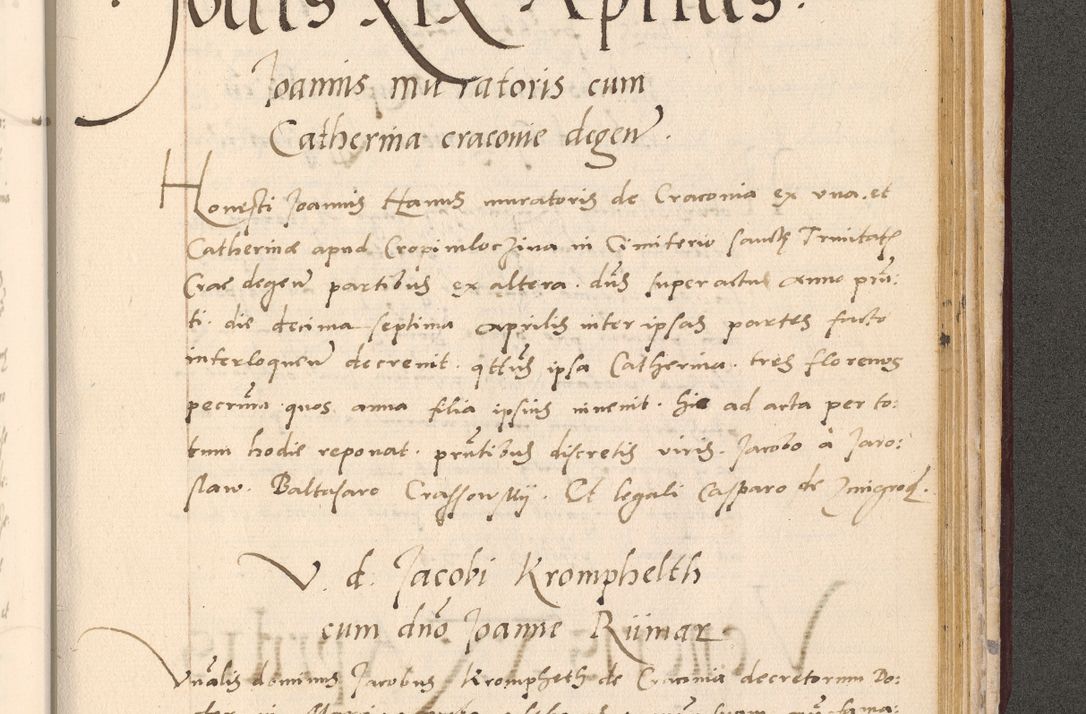 Jovis XIX Aprilis.
Joannis muratoris cum
Catherina cracovie degen.
Honesti Joannis Hanus muratoris de Cracovia ex una. et
Catherinæ apud Cropimloczina in Cimiterio sancte Trinitatis
Crac degen partibus ex altera. dus superactus anno prn:
ti. die decima septima aprilis inter ipsas partes facto
interloquen decrevit. qttus ipsa Catherina. tres florenos
pecrum quos anna filia ipsius invenit. hic ad acta per to:
tum hodie reponat. prntibus discretis viris. Jacobo à Jaro:
slaw. Baltasaro Crassowskij. Et legali Casparo de Zmigrod.
V. d. Jacobi Kromphelth
cum dno Joanne Rümar
Vnalis dominus Jacobus Krompheth de Cracovia decretorum Do: